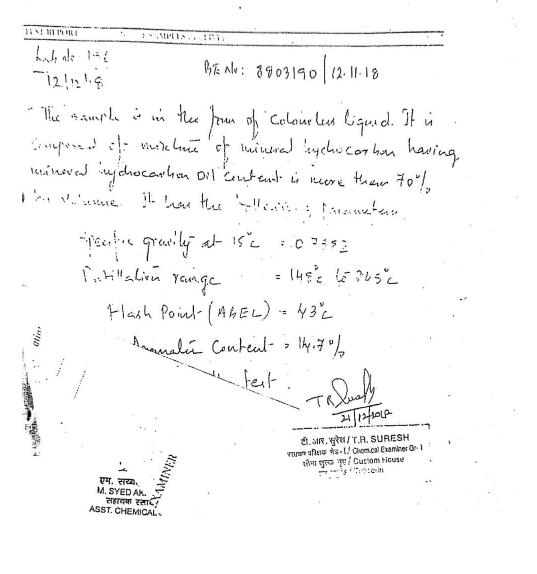 TEST REPORT
Lab No
12/12/18
B/E No: 8803190 / 12.11.18
"The sample is in the form of colourless liquid. It is
composed of mixture of mineral hydrocarbon having
mineral hydrocarbon oil content is more than 70%
by volume. It has the following parameters.
Specific gravity at 15°C = 0.7
Distillation range = 148°C to 245°C
Flash Point (ABEL) = 43°C
Aromatic Content = 14.7%
test.
21/12/2018
टी. आर. सुरेश / T.R. SURESH
रसायन परीक्षक ग्रेड-I / Chemical Examiner Gr-I
सीमा शुल्क गृह / Custom House
एम. सय्य
M. SYED AK.
सहायक रसा
ASST. CHEMICAL
EXAMINER